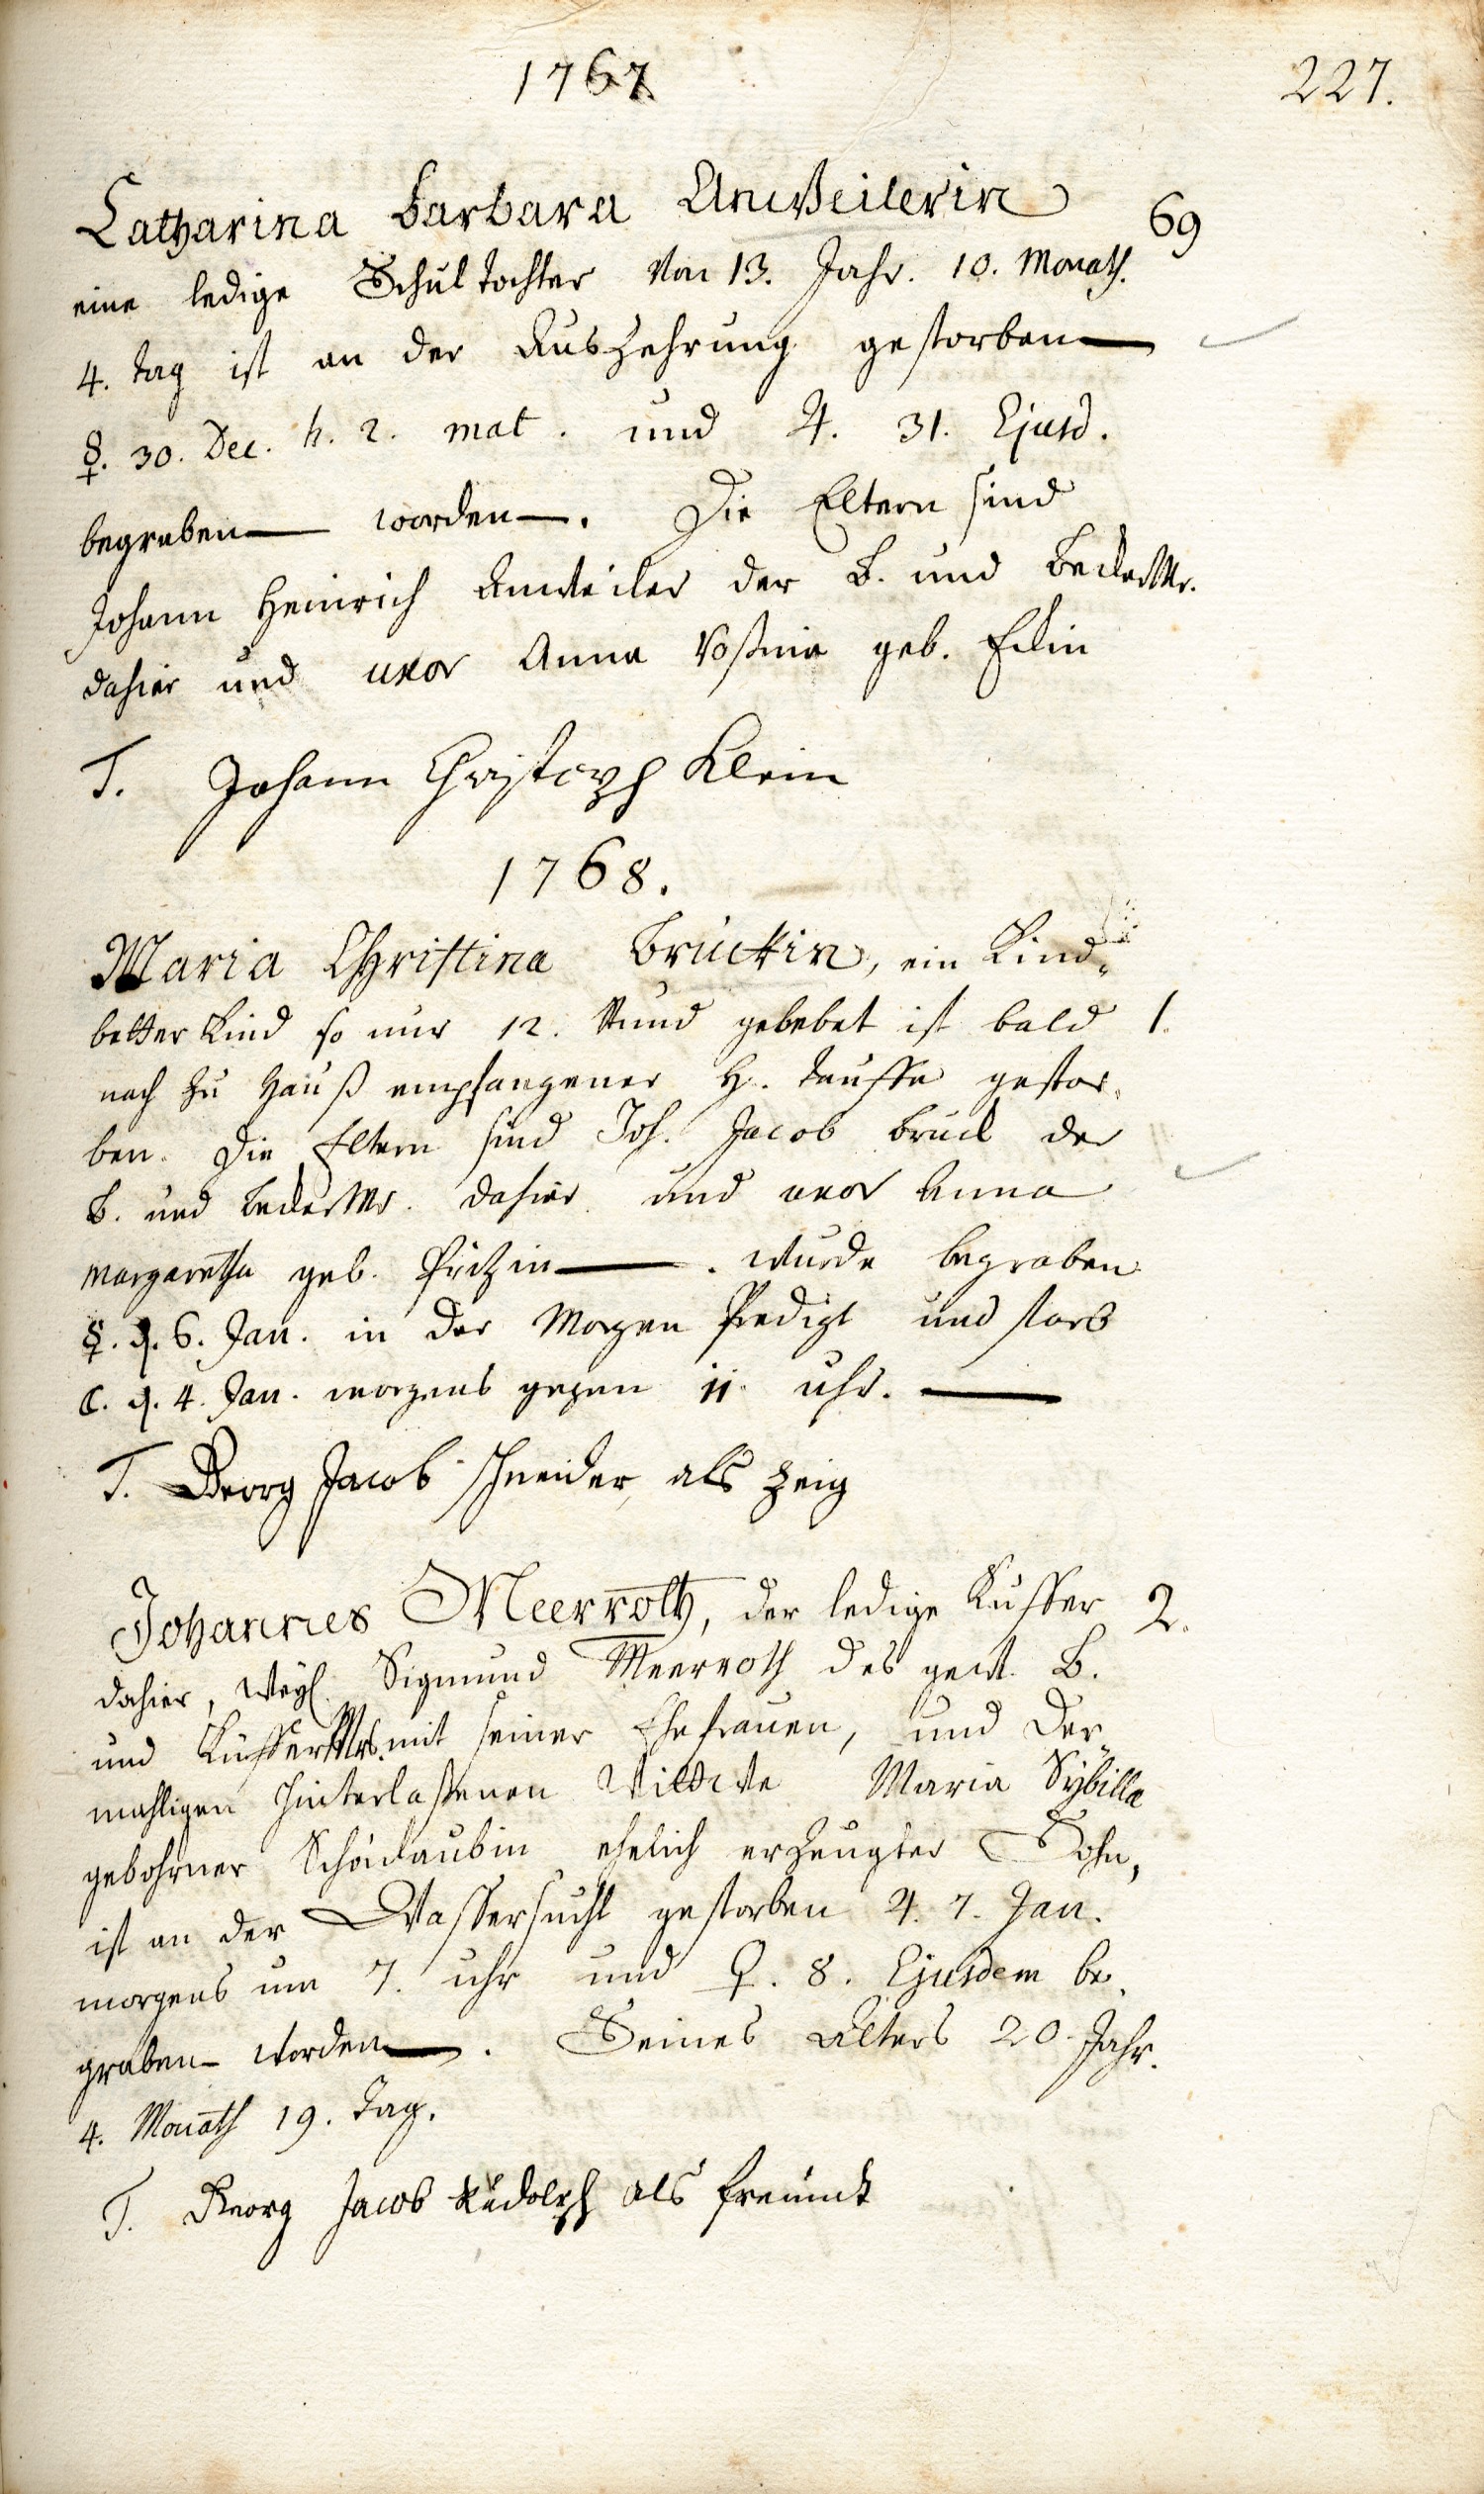 1767
227.
Catharina Barbara Anweilerin
69
eine ledige Schul tochter von 13. Jahr. 10. Monath.
4. tag ist an der Auszehrung gestorben
☿. 30. Dec. h. 2. mat. und ♃. 31. Ejusd.
begraben worden. Die Eltern sind
Johann Heinrich Anweiler der B. und BeckerMr.
dahier und uxor Anna geb.
T. Johann Christoph Klein
1768.
Maria Christina Brückin, ein Kind=
better Kind so nur 12. Stund gelebet ist bald
1.
nach zu Hauß empfangener H. Tauffe gestor=
ben. Die Eltern sind Joh. Jacob Brück der
B. und BeckerMr. dahier und uxor Anna
Margaretha geb. . wurde begraben
☿. d. 6. Jan. in der Morgen Predigt und starb
☾. d. 4. Jan. morgens gegen 11. uhr.
T. Georg Jacob schneider als zeig
Johannes Meerroth, der ledige Küffer
2.
dahier, weyl. Sigmund Meerroth des gewt. B.
und KüfferMrs. mit seiner Ehefrauen, und der=
mahligen hinterlaßenen Wittwe Maria Sybilla
gebohrner ehelich erzeugter Sohn,
ist an der Wassersucht gestorben ♃. 7. Jan.
morgens um 7. uhr und ♀. 8. Ejusdem be=
graben worden. Seines Alters 20. Jahr.
4. Monath 19. Tag.
T. Georg Jacob Rudolph als freundt